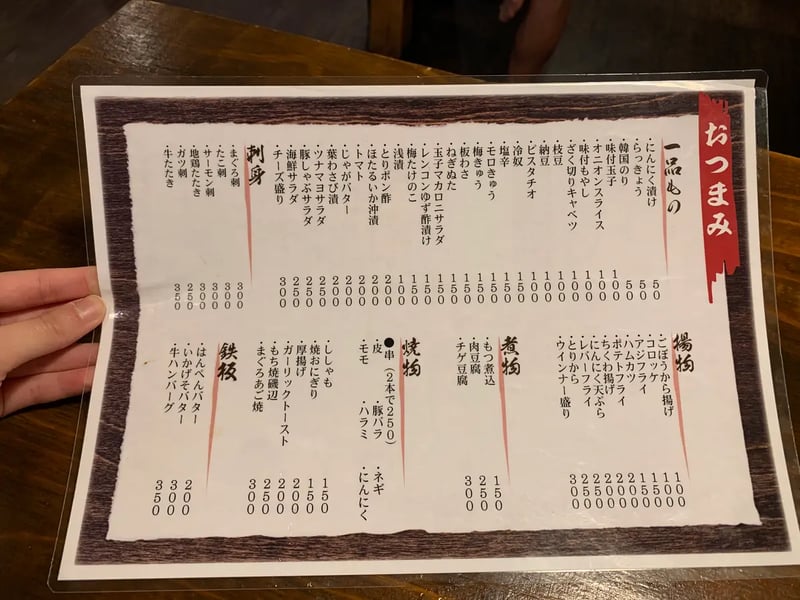 おつまみ
一品もの
・にんにく漬け 50
・らっきょう 50
・韓国のり 50
・味付玉子 100
・オニオンスライス 100
・味付もやし 100
・ざく切りキャベツ 100
・枝豆 100
・納豆 100
・ピスタチオ 100
・冷奴
・塩辛
・モロきゅう
・梅きゅう
・板わさ
・ねぎぬた
・玉子マカロニサラダ
・レンコンゆず酢漬け
・梅たけのこ
・浅漬
・とりポン酢 200
・ほたるいか沖漬 200
・トマト 200
・じゃがバター 200
・葉わさび漬 200
・ツナマヨサラダ 250
・豚しゃぶサラダ 250
・海鮮サラダ 250
・チーズ盛り 300
刺身
・まぐろ刺 300
・たこ刺 300
・サーモン刺 300
・地鶏たたき 300
・ガツ刺 250
・牛たたき 350
揚物
・ごぼうから揚げ 100
・コロッケ 100
・アジフライ 150
・ハムカツ
・ポテトフライ 200
・ちくわ揚げ 200
・にんにく天ぷら 200
・レバーフライ 200
・とりから
・ウインナー盛り 300
煮物
・もつ煮込 150
・肉豆腐 250
・チゲ豆腐 300
焼物
●串（2本で250）
・皮 ・豚バラ ・ネギ
・モモ ・ハラミ ・にんにく
・ししゃも 150
・焼おにぎり 150
・厚揚げ 200
・ガーリックトースト 200
・もち焼磯辺 250
・まぐろあご焼 300
鉄板
・はんぺんバター 200
・いかげそバター 300
・牛ハンバーグ 350